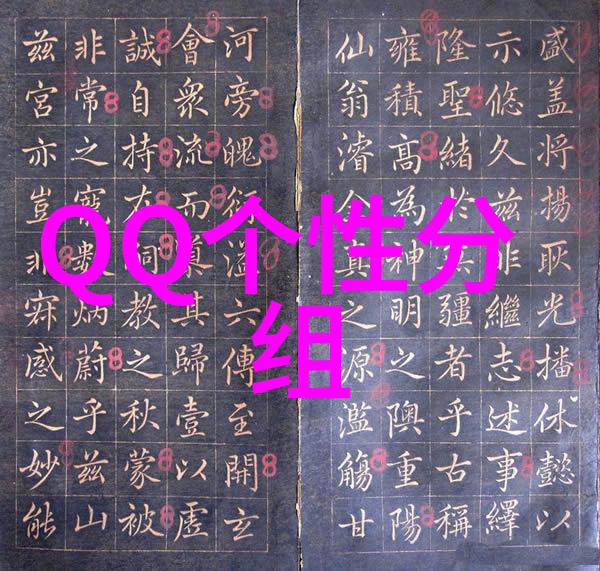 QQ个性分
组
盛盖将揚耿光播休懿以
示悠久兹非繼志述事繹
隆聖緒於疆者乎古稱
雍積高為神明之隩重陽
仙翁濬真之源滥觴甘
河旁魄衍溢六傳至開玄
會衆流而其歸壹以虛
誠自持祠教之秋蒙被
非常之寵炳蔚乎兹山
兹宮亦豈非感之妙能